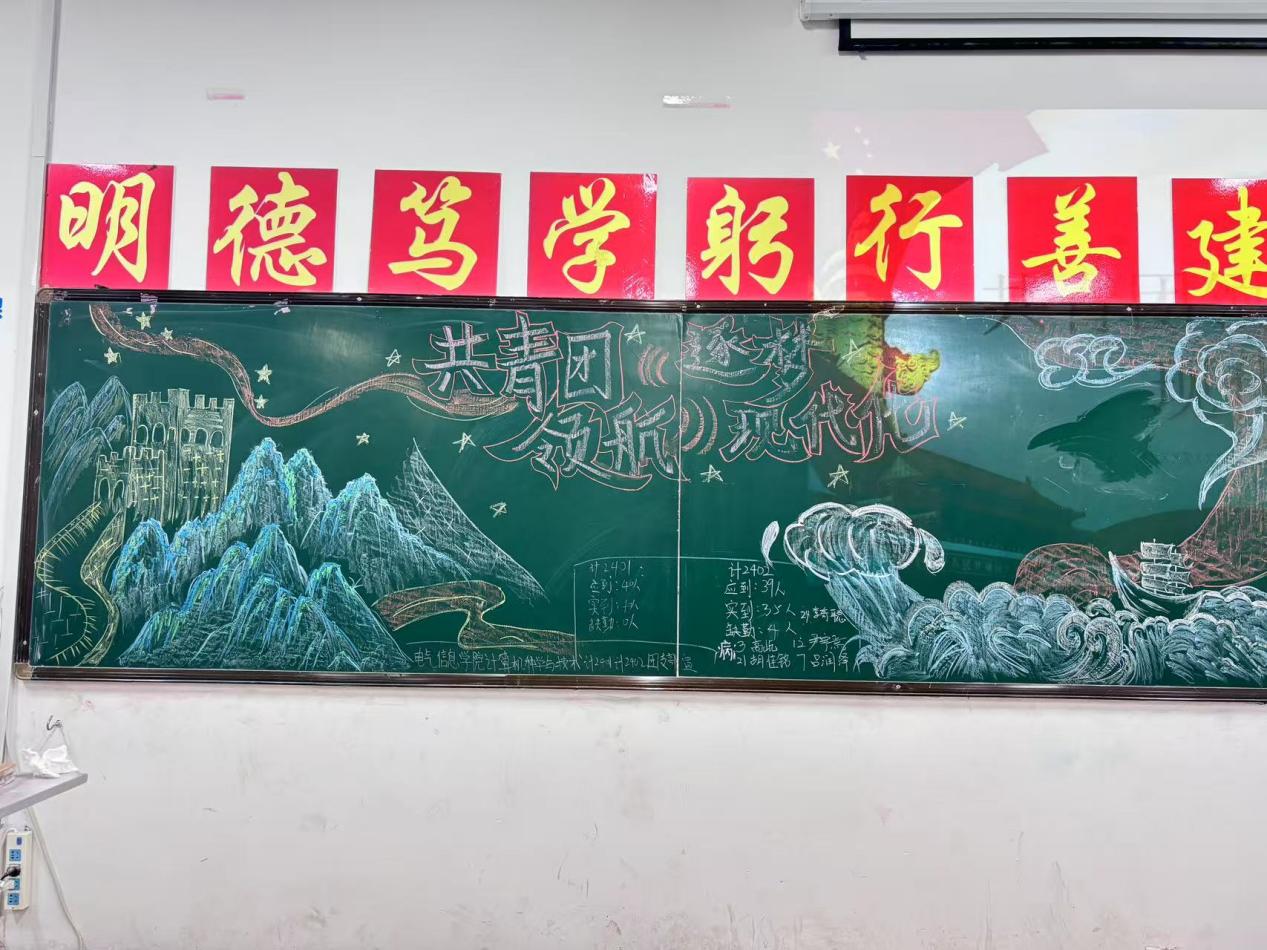 明德笃学躬行善建
共青团 逐梦
领航 现代化
计2401:
应到:40人
实到:
缺勤:0人
计2402
应到:39人
实到:35人
缺勤:4人
病
电气信息学院计算机科学与技术计2401计2402团支部